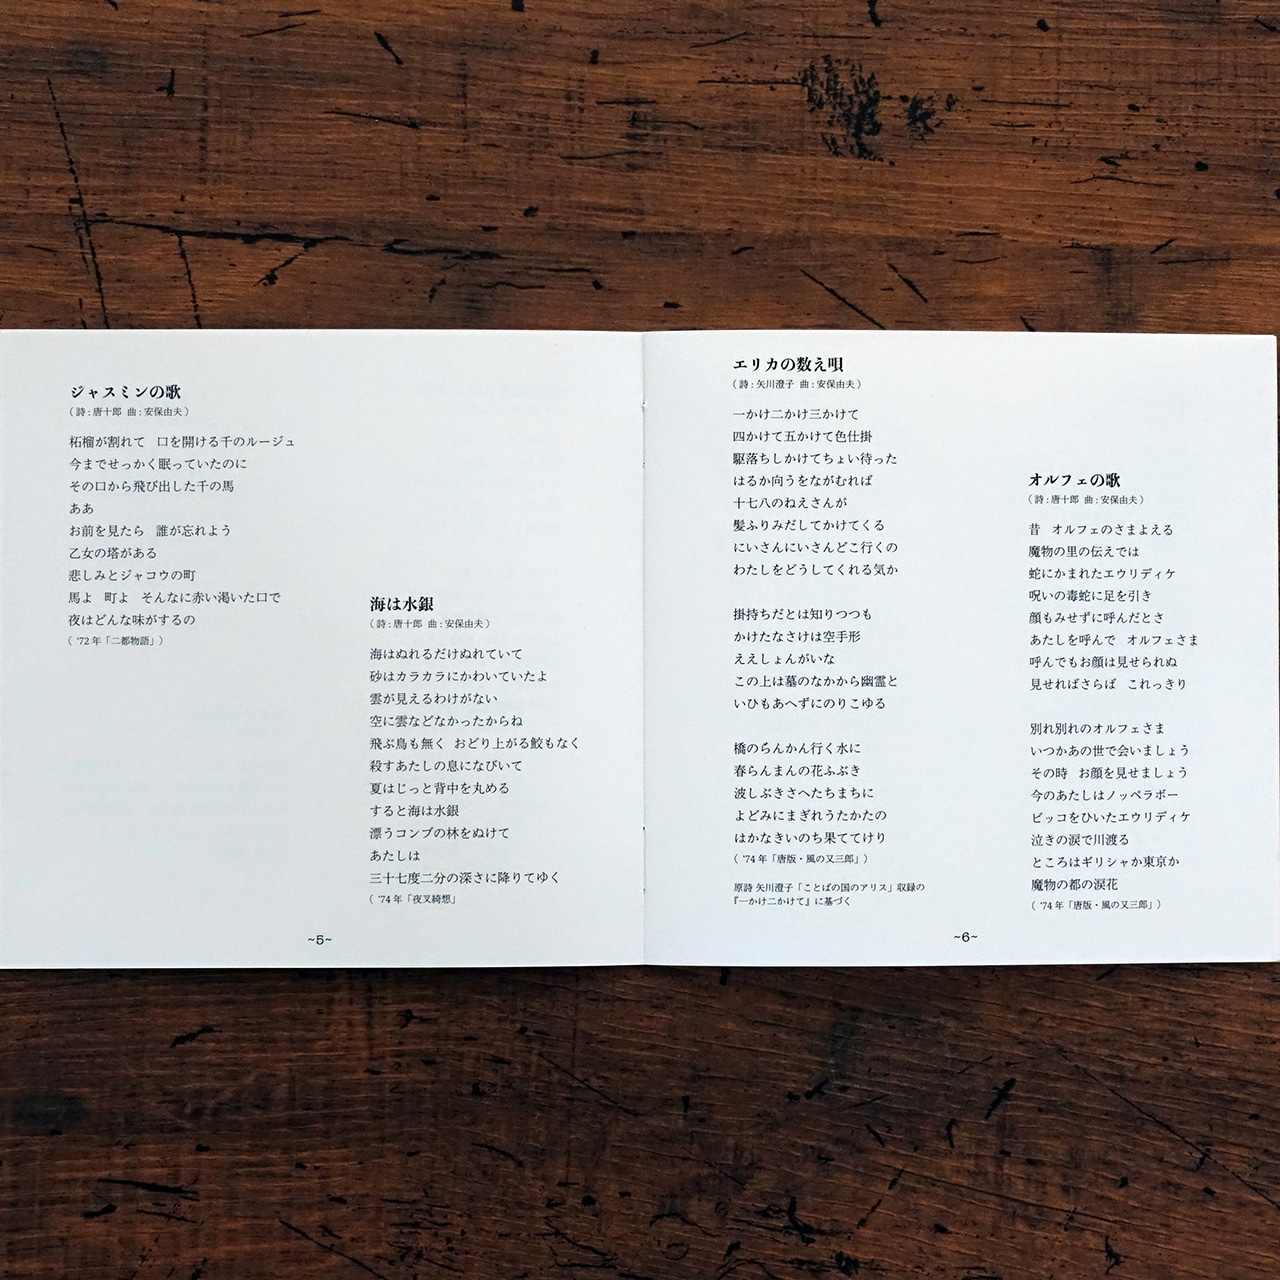 ジャスミンの歌
（ 詩 : 唐十郎  曲 : 安保由夫 ）
柘榴が割れて　口を開ける千のルージュ
今までせっかく眠っていたのに
その口から飛び出した千の馬
ああ
お前を見たら　誰が忘れよう
乙女の塔がある
悲しみとジャコウの町
馬よ　町よ　そんなに赤い渇いた口で
夜はどんな味がするの
（ '72 年「二都物語」）
海は水銀
（ 詩 : 唐十郎  曲 : 安保由夫 ）
海はぬれるだけぬれていて
砂はカラカラにかわいていたよ
雲が見えるわけがない
空に雲などなかったからね
飛ぶ鳥も無く　おどり上がる鮫もなく
殺すあたしの息になびいて
夏はじっと背中を丸める
すると海は水銀
漂うコンブの林をぬけて
あたしは
三十七度二分の深さに降りてゆく
（ '74 年「夜叉綺想」
~5~
エリカの数え唄
（ 詩 : 矢川澄子  曲 : 安保由夫 ）
一かけ二かけ三かけて
四かけて五かけて色仕掛
駆落ちしかけてちょい待った
はるか向うをながむれば
十七八のねえさんが
髪ふりみだしてかけてくる
にいさんにいさんどこ行くの
わたしをどうしてくれる気か
掛持ちだとは知りつつも
かけたなさけは空手形
ええしょんがいな
この上は墓のなかから幽霊と
いひもあへずにのりこゆる
橋のらんかん行く水に
春らんまんの花ふぶき
波しぶきさへたちまちに
よどみにまぎれうたかたの
はかなきいのち果ててけり
（ '74 年「唐版・風の又三郎」）
原詩 矢川澄子「ことばの国のアリス」収録の
『一かけ二かけて』に基づく
オルフェの歌
（ 詩 : 唐十郎  曲 : 安保由夫 ）
昔　オルフェのさまよえる
魔物の里の伝えでは
蛇にかまれたエウリディケ
呪いの毒蛇に足を引き
顔もみせずに呼んだとさ
あたしを呼んで　オルフェさま
呼んでもお顔は見せられぬ
見せればさらば　これっきり
別れ別れのオルフェさま
いつかあの世で会いましょう
その時　お顔を見せましょう
今のあたしはノッペラボー
ビッコをひいたエウリディケ
泣きの涙で川渡る
ところはギリシャか東京か
魔物の都の涙花
（ '74 年「唐版・風の又三郎」）
~6~